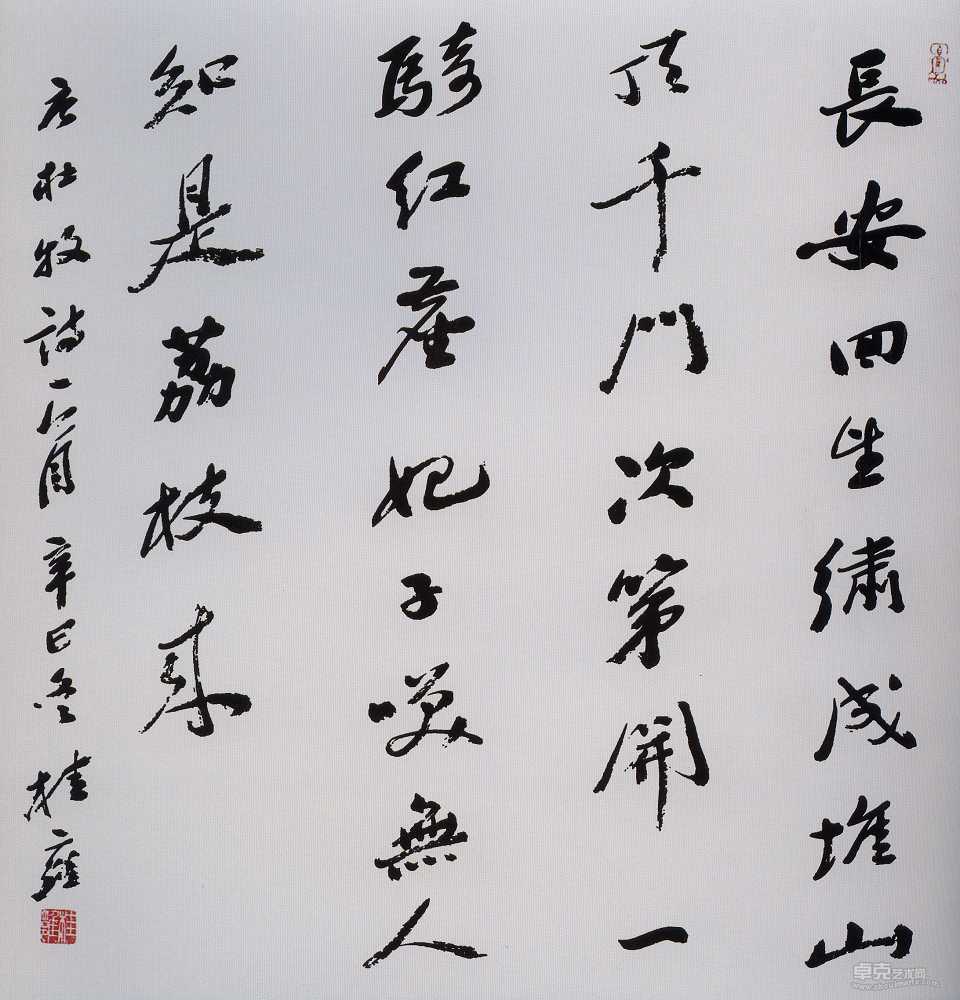 長安回望繡成堆山
頂千門次第開一
騎红塵妃子咲無人
知是荔枝来
唐杜牧詩一首 辛巳冬 桂雍
卓克艺术网